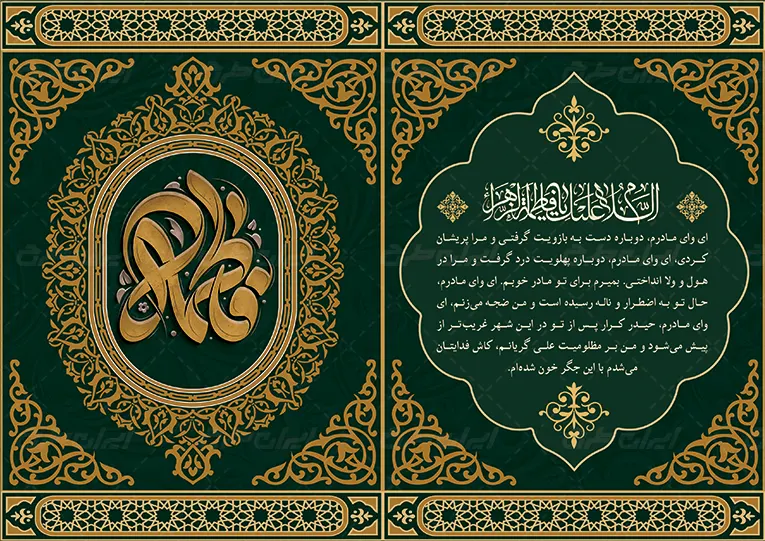 السلام علیک یا فاطمة الزهرا
ای وای مادرم، دوباره دست به بازویت گرفتی و مرا پریشان
کردی، ای وای مادرم، دوباره پهلویت درد گرفت و مرا در
هول و ولا انداختی. بمیرم برای تو مادر خوبم. ای وای مادرم،
حال تو به اضطرار و ناله رسیده است و من ضجه می‌زنم، ای
وای مادرم، حیدر کرار پس از تو در این شهر غریب‌تر از
پیش می‌شود و من بر مظلومیت علی گریانم، کاش فدایتان
می‌شدم با این جگر خون شده‌ام.
فاطمة الزهرا
ایران طرح